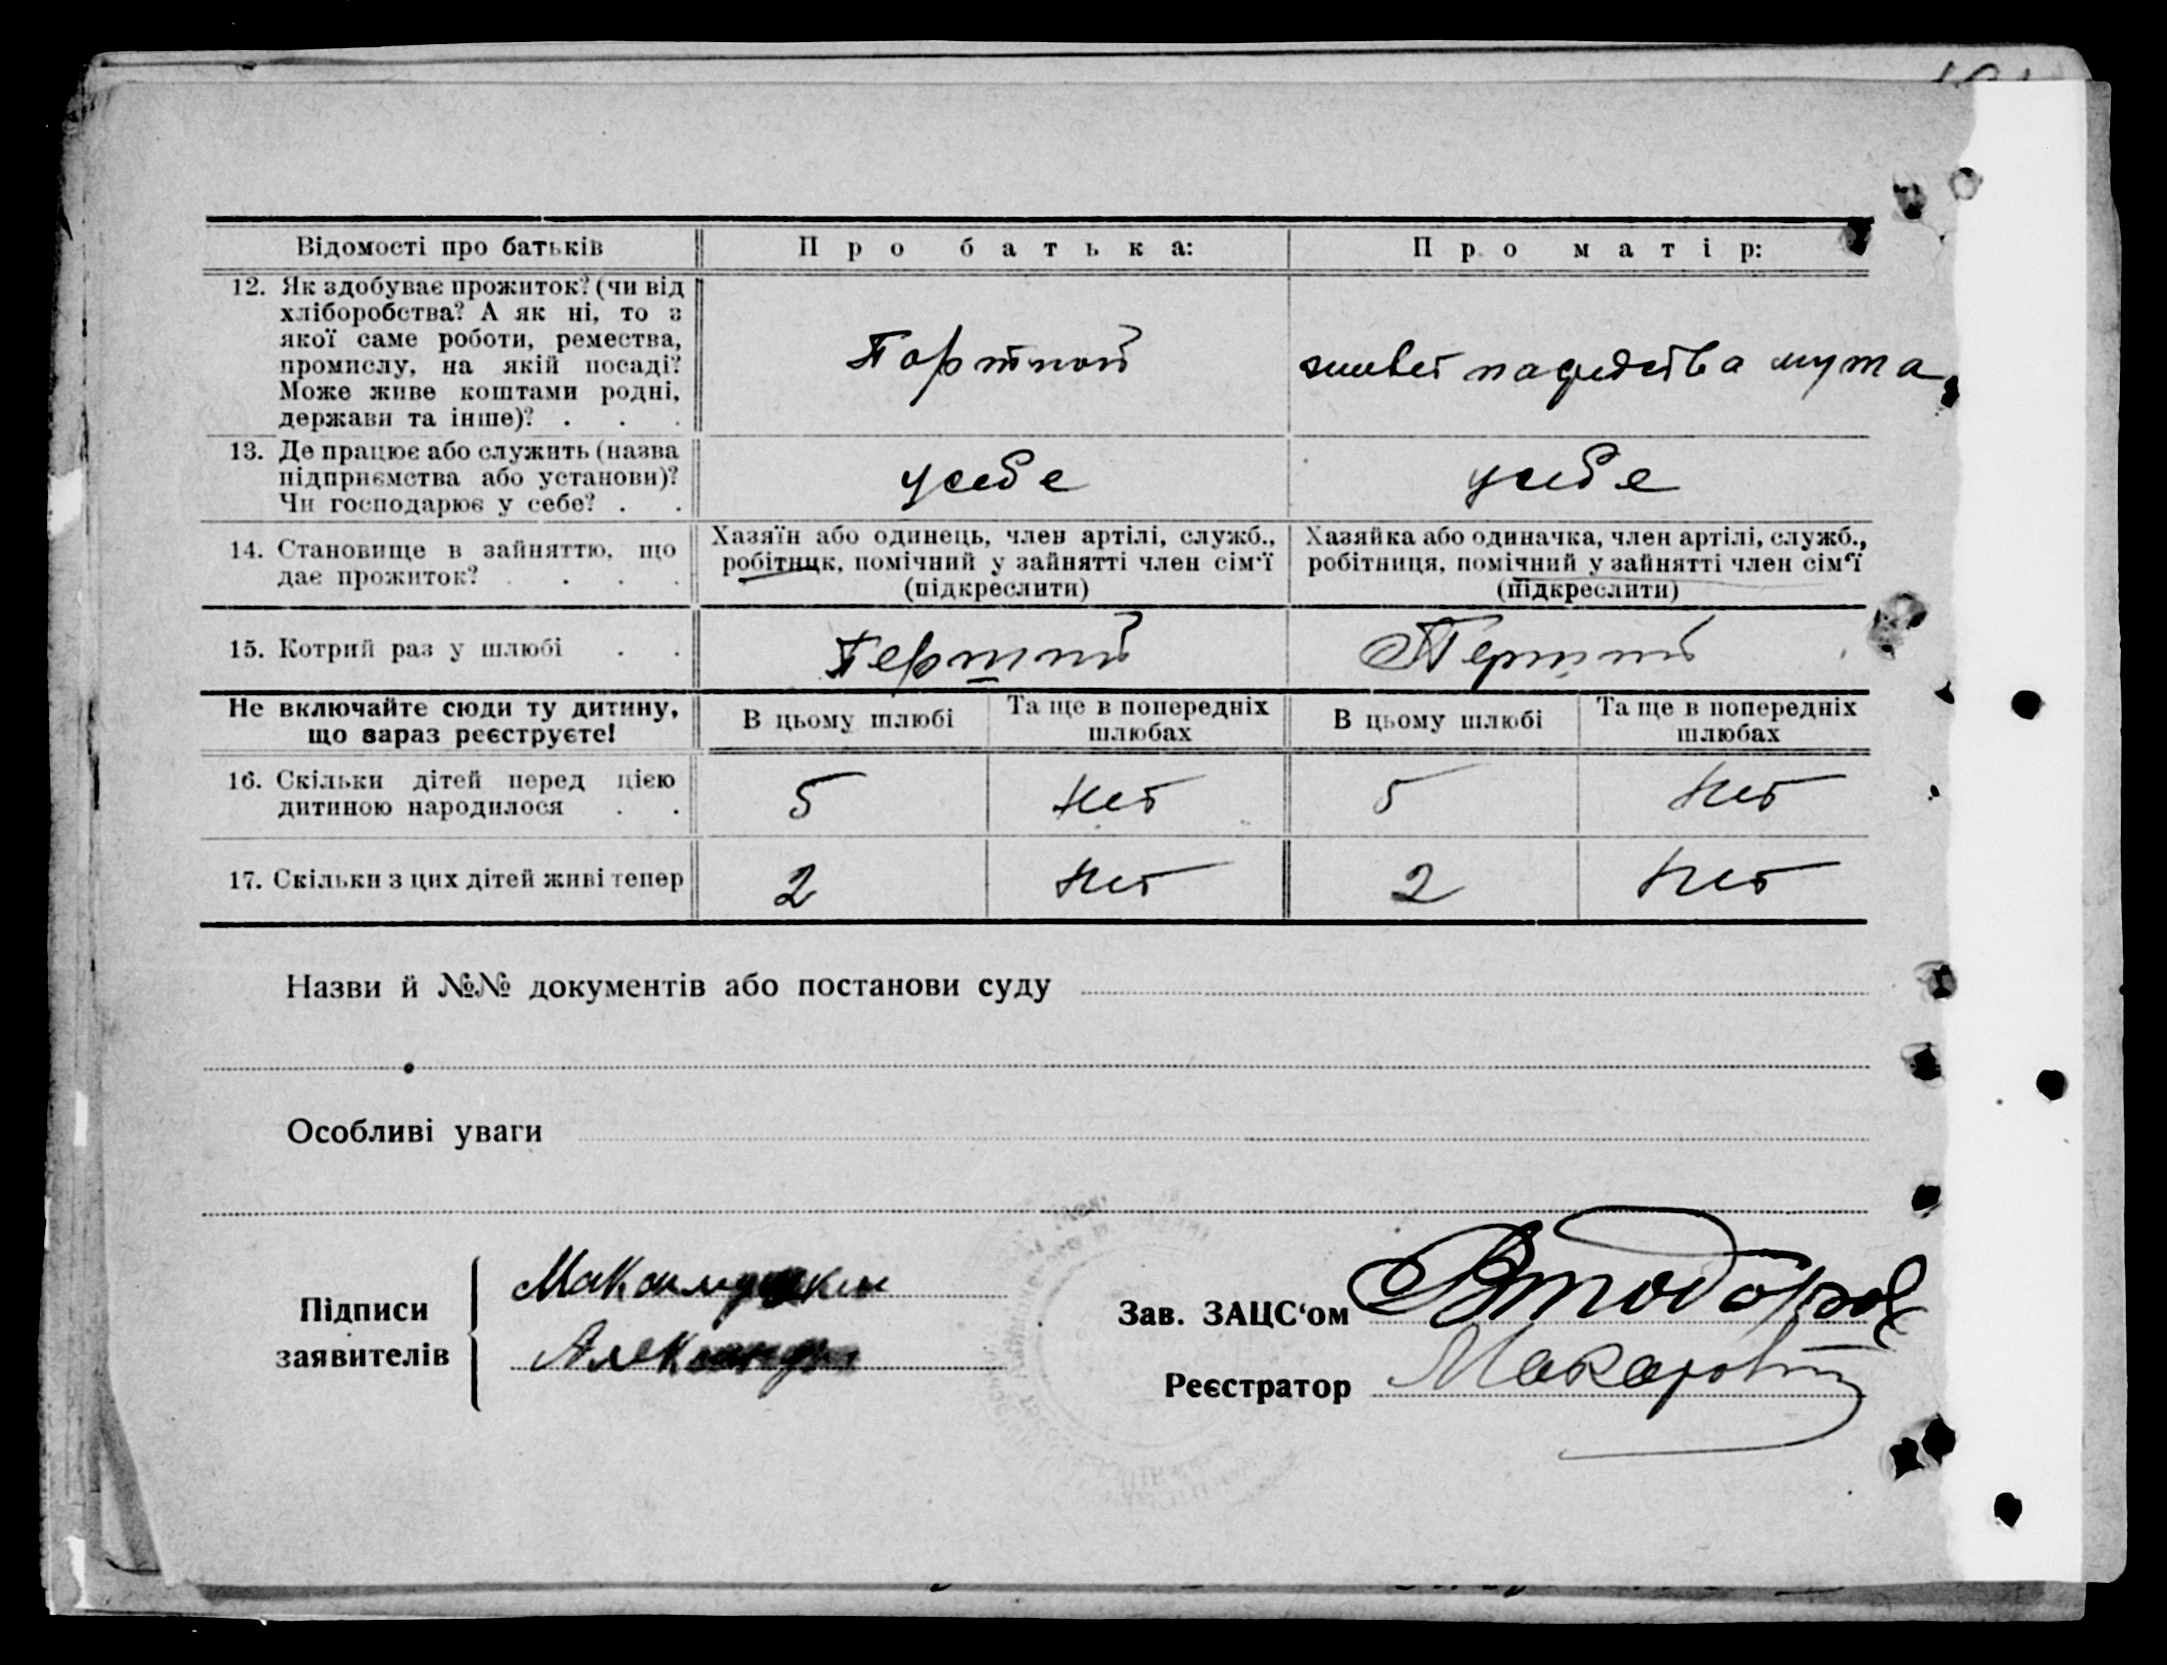 Відомості про батьків
Про батька:
Про матір:
12. Як здобуває прожиток? (чи від
хліборобства? А як ні, то з
якої саме роботи, ремества,
промислу, на якій посаді?
Може живе коштами родні,
держави та інше)? . . .
Портной
живет на средства мужа
13. Де працює або служить (назва
підприємства або установи)?
Чи господарює у себе? . .
у себе
у себе
14. Становище в зайняттю, що
дає прожиток? . . . .
Хазяїн або одинець, член артілі, служб.,
робітник, помічний у зайнятті член сім‘ї
(підкреслити)
Хазяйка або одиначка, член артілі, служб.,
робітниця, помічний у зайнятті член сім‘ї
(підкреслити)
15. Котрий раз у шлюбі . .
Первый
Первый
Не включайте сюди ту дитину,
що зараз реєструєте!
В цьому шлюбі
Та ще в попередніх
шлюбах
В цьому шлюбі
Та ще в попередніх
шлюбах
16. Скільки дітей перед цією
дитиною народилося . .
5
Нет
5
Нет
17. Скільки з цих дітей живі тепер
2
Нет
2
Нет
Назви й №№ документів або постанови суду
Особливі уваги
Підписи
заявителів
Зав. ЗАЦС‘ом
Реєстратор